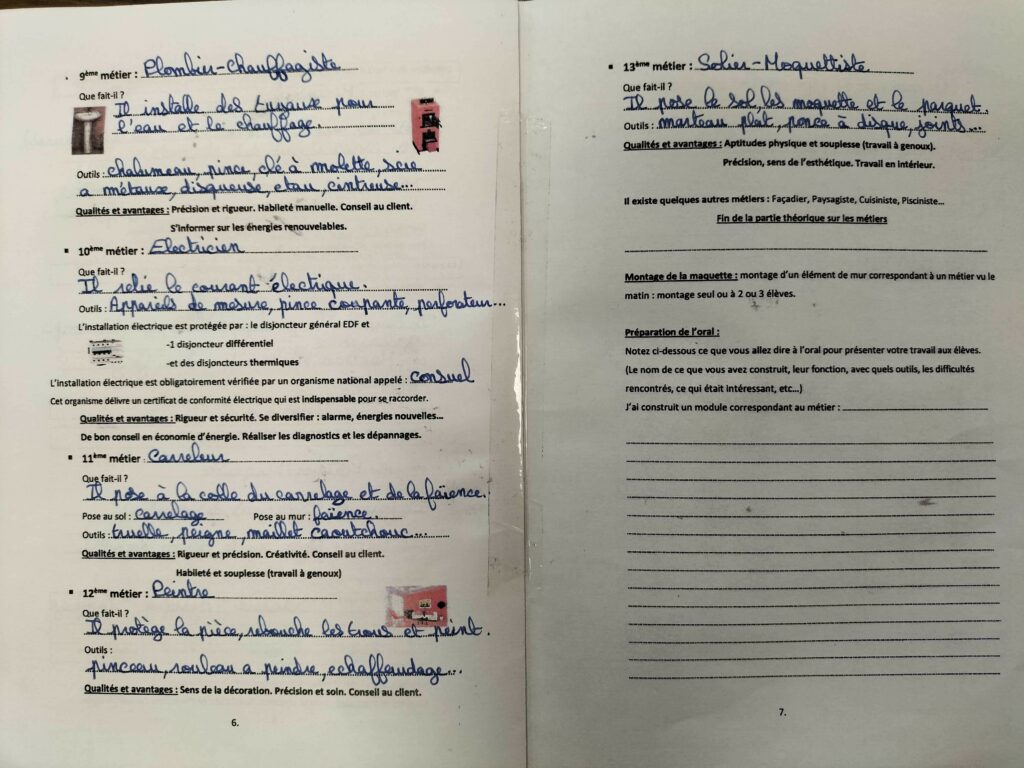 9ème métier : Plombier-Chauffagiste
Que fait-il ?
Il installe des tuyaux pour
l'eau et le chauffage.
Outils : chalumeau, pince, clé à molette, scie
a métaux, disqueuse, etau, cintreuse...
Qualités et avantages : Précision et rigueur. Habileté manuelle. Conseil au client.
S'informer sur les énergies renouvelables.
10ème métier : Electricien
Que fait-il ?
Il relie le courant électrique.
Outils : Appareils de mesure, pince coupante, perforateur...
L'installation électrique est protégée par : le disjoncteur général EDF et
-1 disjoncteur différentiel
-et des disjoncteurs thermiques
L'installation électrique est obligatoirement vérifiée par un organisme national appelé : consuel
Cet organisme délivre un certificat de conformité électrique qui est indispensable pour se raccorder.
Qualités et avantages : Rigueur et sécurité. Se diversifier : alarme, énergies nouvelles...
De bon conseil en économie d'énergie. Réaliser les diagnostics et les dépannages.
11ème métier : Carreleur
Que fait-il ?
Il pose à la colle du carrelage et de la faïence.
Pose au sol : carrelage Pose au mur : faïence.
Outils : truelle, peigne, maillet caoutchouc...
Qualités et avantages : Rigueur et précision. Créativité. Conseil au client.
Habileté et souplesse (travail à genoux)
12ème métier : Peintre
Que fait-il ?
Il protège la pièce, rebouche les trous et peint.
Outils :
pinceau, rouleau a peindre, echaffaudage...
Qualités et avantages : Sens de la décoration. Précision et soin. Conseil au client.
6.
13ème métier : Solier-Moquettiste
Que fait-il ?
Il pose le sol, les moquette et le parquet.
Outils : marteau plat, ponce à disque, joints...
Qualités et avantages : Aptitudes physique et souplesse (travail à genoux).
Précision, sens de l'esthétique. Travail en intérieur.
Il existe quelques autres métiers : Façadier, Paysagiste, Cuisiniste, Pisciniste...
Fin de la partie théorique sur les métiers
Montage de la maquette : montage d'un élément de mur correspondant à un métier vu le
matin : montage seul ou à 2 ou 3 élèves.
Préparation de l'oral :
Notez ci-dessous ce que vous allez dire à l'oral pour présenter votre travail aux élèves.
(Le nom de ce que vous avez construit, leur fonction, avec quels outils, les difficultés
rencontrés, ce qui était intéressant, etc...)
J'ai construit un module correspondant au métier :
7.